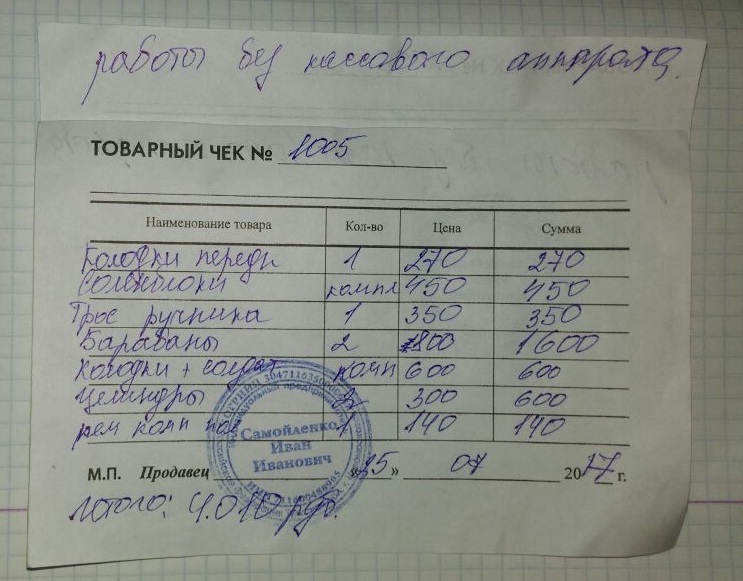 работы без кассового аппарата.
ТОВАРНЫЙ ЧЕК № 1005
Наименование товара Кол-во Цена Сумма
Колодки передн 1 270 270
компл 450 450
Трос ручника 1 350 350
Барабаны 2 800 1600
Колодки + компл 600 600
Цилиндры 2 300 600
рем комп 1 140 140
Самойленко
Иван
Иванович
М.П. Продавец «15» 07 2017 г.
Итого: 4.010 руб.